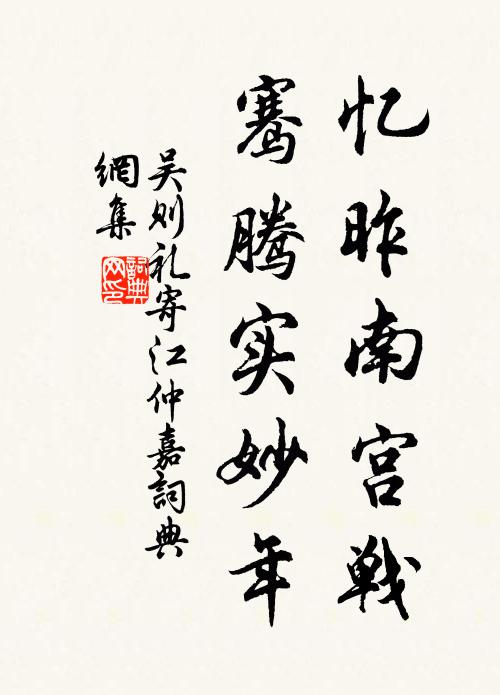 忆昨南宫戦
骞腾实妙年
吴则礼寄江仲嘉詞典
網集
詞典
网印